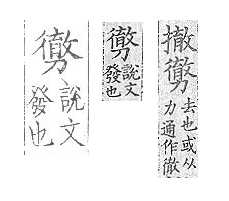 勶
說文
發也
勶
說文
發也
撤勶
去也或从
力通作徹